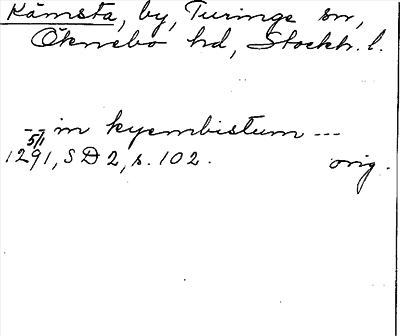 Kämsta, by, Turinge sn,
Öknebo hd, Stockh. l.
-- in kyembistum ---
5/1
1291, SD 2, s. 102. orig.